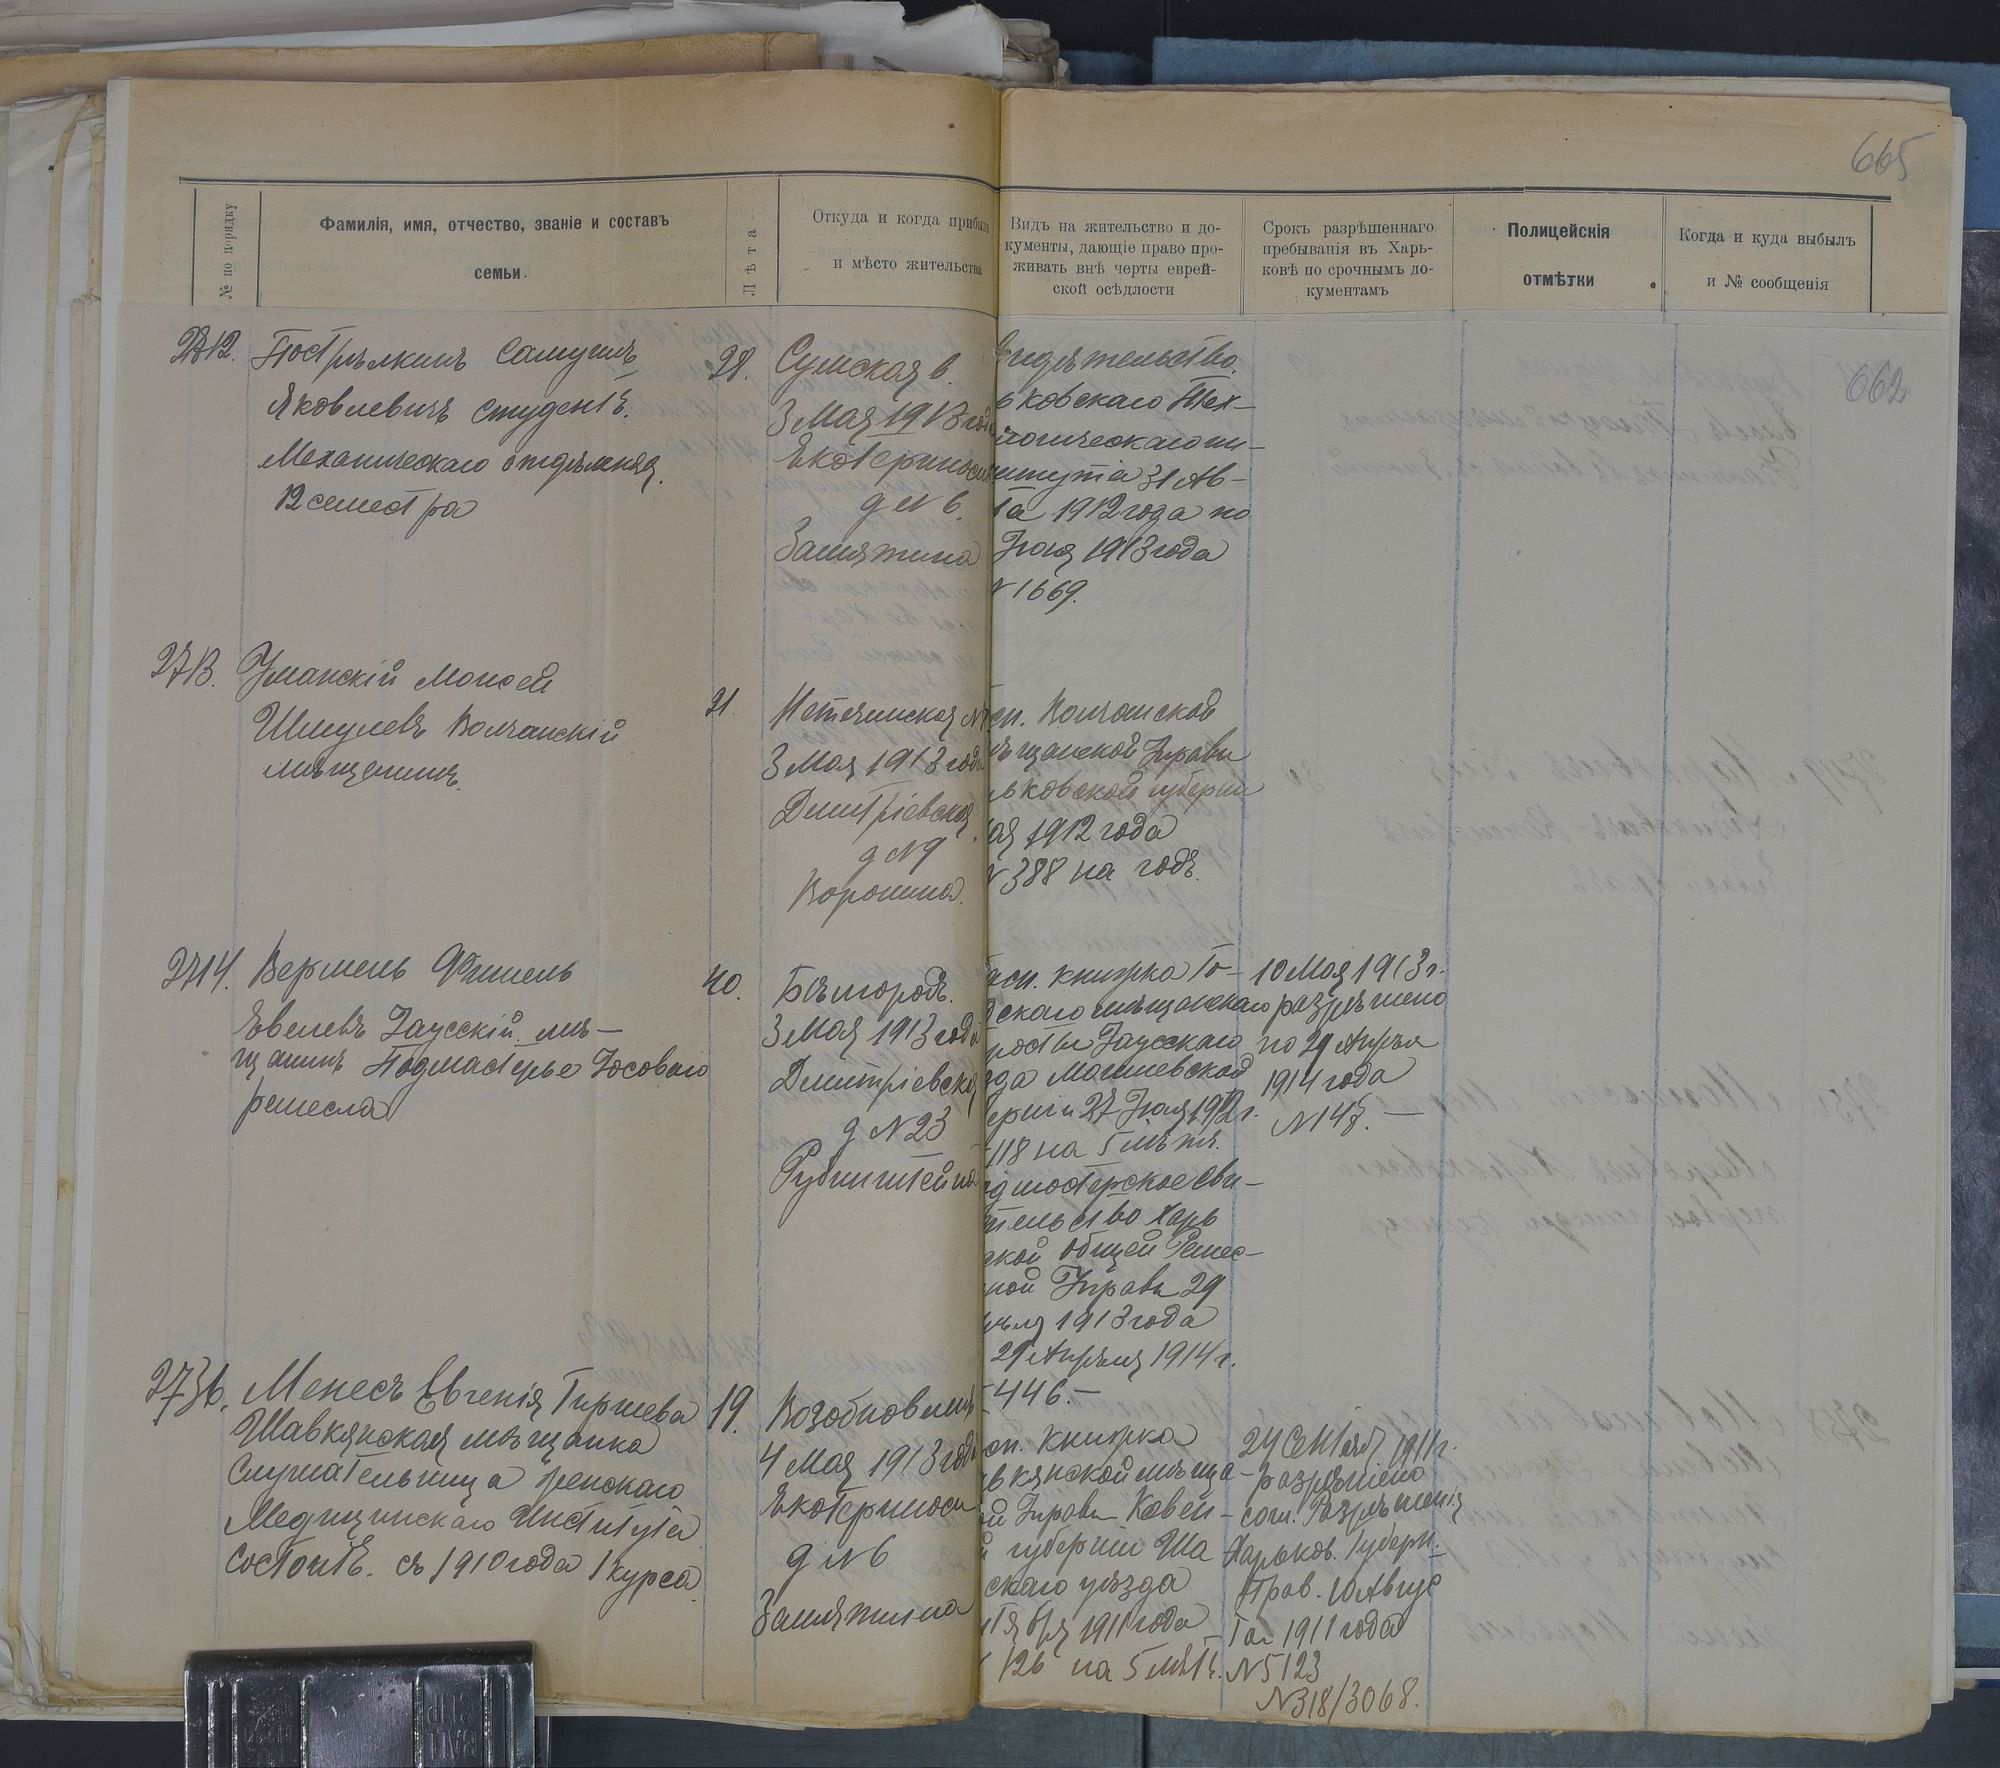 665
№ по порядку
Фамилія, имя, отчество, званіе и составъ
семьи.
Лѣта
Откуда и когда прибылъ
и мѣсто жительства
Видъ на жительство и до-
кументы, дающіе право про-
живать внѣ черты еврей-
ской осѣдлости
Срокъ разрѣшеннаго
пребыванія въ Харь-
ковѣ по срочнымъ до-
кументамъ
Полицейскія
отмѣтки
Когда и куда выбылъ
и № сообщенія
662
2712.
Пострѣлкинъ Самуилъ
Яковлевичъ студентъ
Механическаго отдѣленія
12 семестра
28.
Сумская 6.
3 Мая 1913 года
Екатериносл
д № 6.
Замятина
видѣтельство
ьковскаго Тех-
логическаго ин-
титута 31 Ав-
та 1912 года по
Іюля 1913 года
№ 1669.
2713.
Уманскій Моисей
Шмулевъ Волчанскій
мѣщанинъ.
21.
Нетечинская №
3 Мая 1913 года
Дмитріевская
д № 9
Воронина.
сп. Волчанской
ѣщанской Управы
ьковской губерніи
ая 1912 года
№ 388 на годъ.
2714.
Вермень Фишель
Евелевъ Чаусскій мѣ-
щанинъ Подмастерье
ремесла
40.
Бѣлгородъ.
3 Мая 1913 года
Дмитріевская
д № 23
Рубинштейна
асп. книжка Го-
дскаго мѣщанскаго
росты Чаусскаго
зда Могилевской
ерніи 27 Іюля 1912 г.
118 на 5 лѣтъ.
дмастерское Сви-
тельство Харь
ской общей Ремес-
ной Управы 29
рѣля 1913 года
29 Апрѣля 1914 г.
446.-
10 Мая 1913 г.
разрѣшено
по 29 Апрѣля
1914 года
№ 147. -
2736.
Менесъ Евгенія Гиршева
Шавкянская мѣщанка
Слушательница Женскаго
Медицинскаго Института
Состоитъ съ 1910 года 1 курса
19.
Возобновилъ
4 Мая 1913 года
Екатериносл
д № 6
Замятина
сп. книжка
вкянской мѣща-
ой Управы Ковен-
й губерніи Ша
скаго уѣзда
нтября 1911 года
126 на 5 лѣтъ.
24 Сентяб 1911 г.
разрѣшено
согл. Разрѣшенія
Харьков. Губерн.
Прав. 10 Авгус
та 1911 года
№ 5123
№ 318/3068.